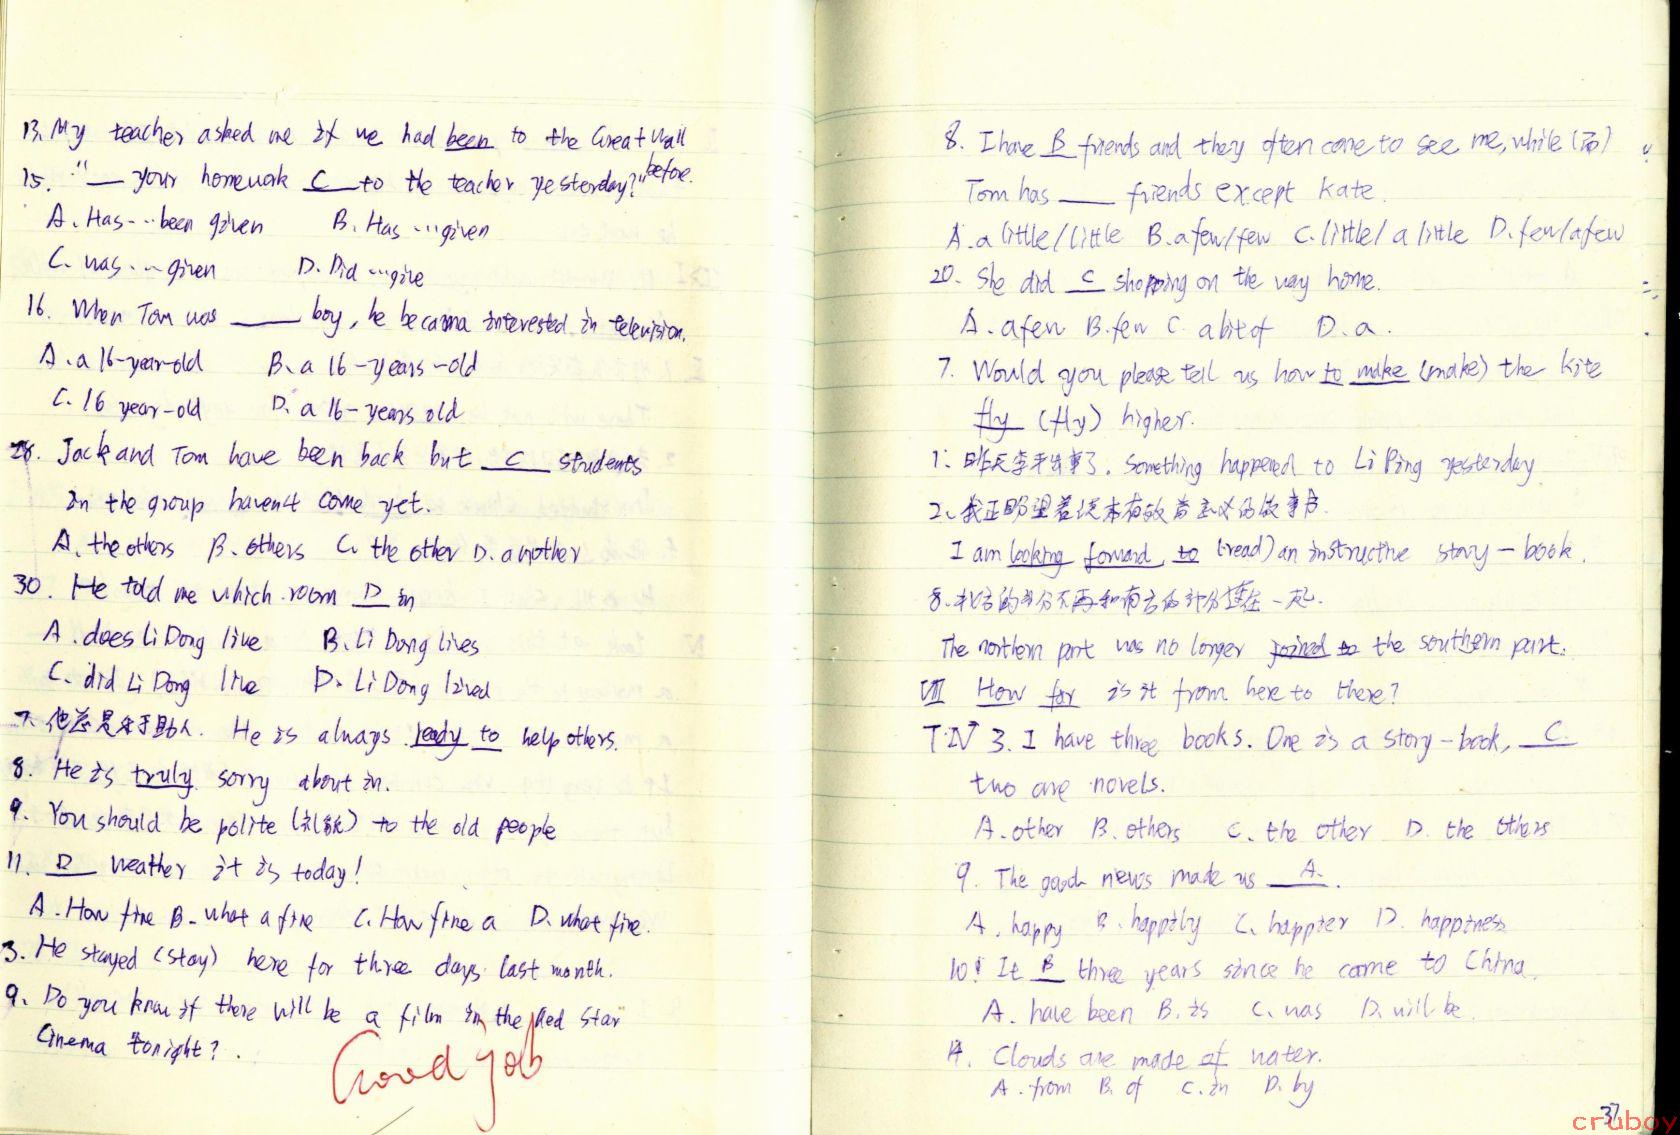 13. My teacher asked me if we had been to the Great Wall
before.
15. "___ your homework C to the teacher yesterday?"
A. Has...been given B. Has...given
C. was...given D. Did...give
16. When Tom was ___ boy, he became interested in television.
A. a 16-year-old B. a 16-years-old
C. 16 year-old D. a 16-years old
28. Jack and Tom have been back but C students
in the group haven't come yet.
A. the others B. others C. the other D. another
30. He told me which room D in
A. does Li Dong live B. Li Dong lives
C. did Li Dong live D. Li Dong lived
7. 他总是乐于助人. He is always ready to help others.
8. He is truly sorry about in.
9. You should be polite (礼貌) to the old people
11. D weather it is today!
A. How fine B. what a fine C. How fine a D. what fine.
3. He stayed (stay) here for three days last month.
9. Do you know if there will be a film in the Red Star
Cinema tonight?
Good job
8. I have B friends and they often come to see me, while (而)
Tom has ___ friends except Kate.
A. a little/little B. a few/few C. little/a little D. few/a few
20. She did C shopping on the way home.
A. a few B. few C. a bit of D. a.
7. Would you please tell us how to make (make) the kite
fly (fly) higher.
1. 昨天李平出事了. Something happened to Li Ping yesterday
2. 我正盼望着读本有教育意义的故事书.
I am looking forward to (read) an instructive story-book.
8. 北方的部分不再和南方的部分连在一起.
The northern part was no longer joined to the southern part.
VIII How far is it from here to there?
T.IV 3. I have three books. One is a story-book, C.
two are novels.
A. other B. others C. the other D. the others
9. The good news made us A.
A. happy B. happily C. happier D. happiness
10! It B three years since he came to China.
A. have been B. is C. was D. will be.
14. Clouds are made of water.
A. from B. of C. in D. by
37
cruboy